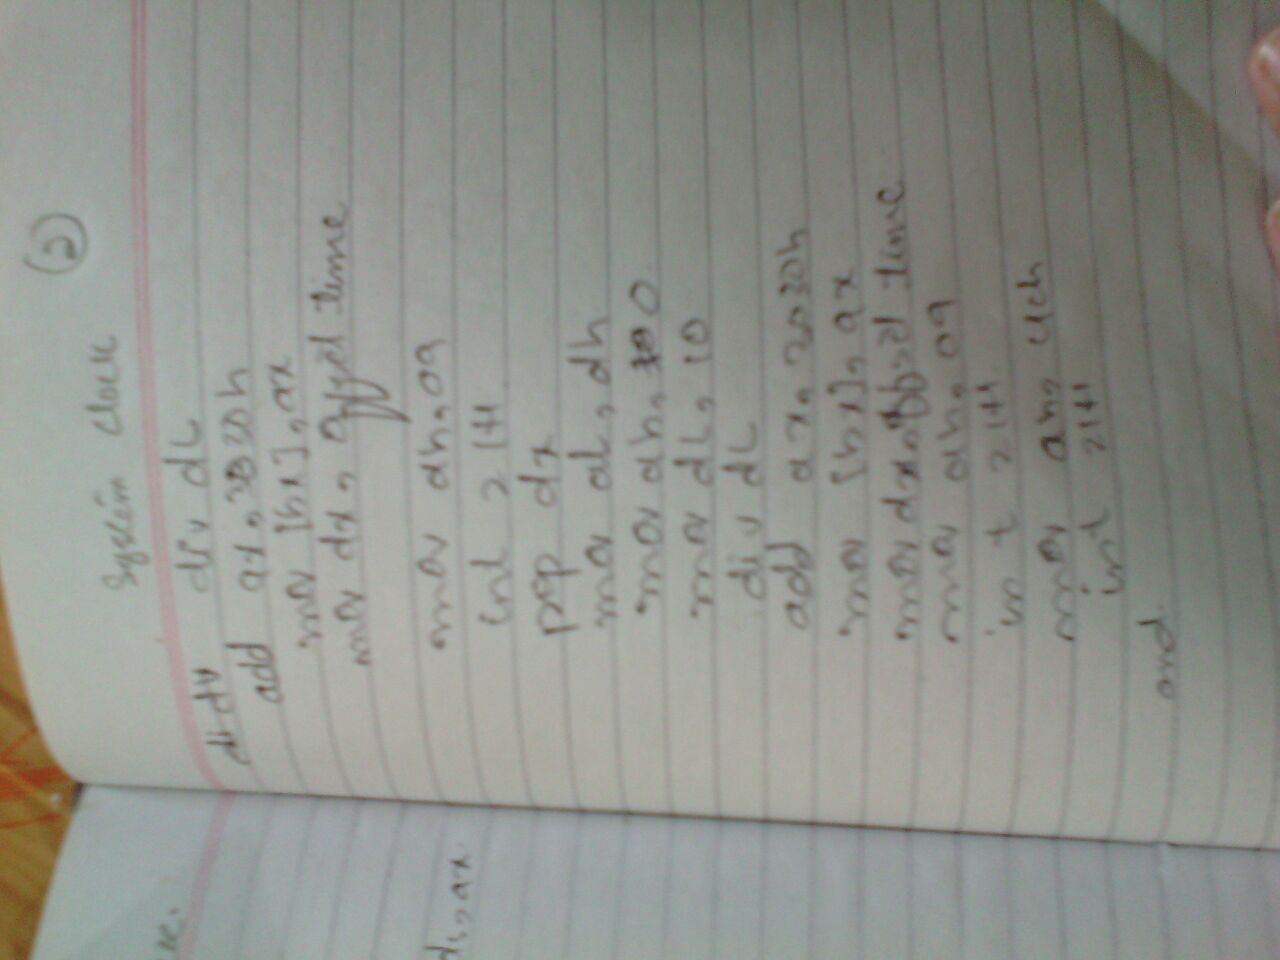 (2)
System Clock
div dL
add ax, 3030h
mov [bx], ax
mov dx, offset time
mov ah, 09
int 21H
pop dx
mov al, dh
mov ah, 0
mov dL, 10
div dL
add ax, 3030h
mov [bx], ax
mov dx, offset time
mov ah, 09
int 21H
mov ah, 4ch
int 21H
end
ds, ax